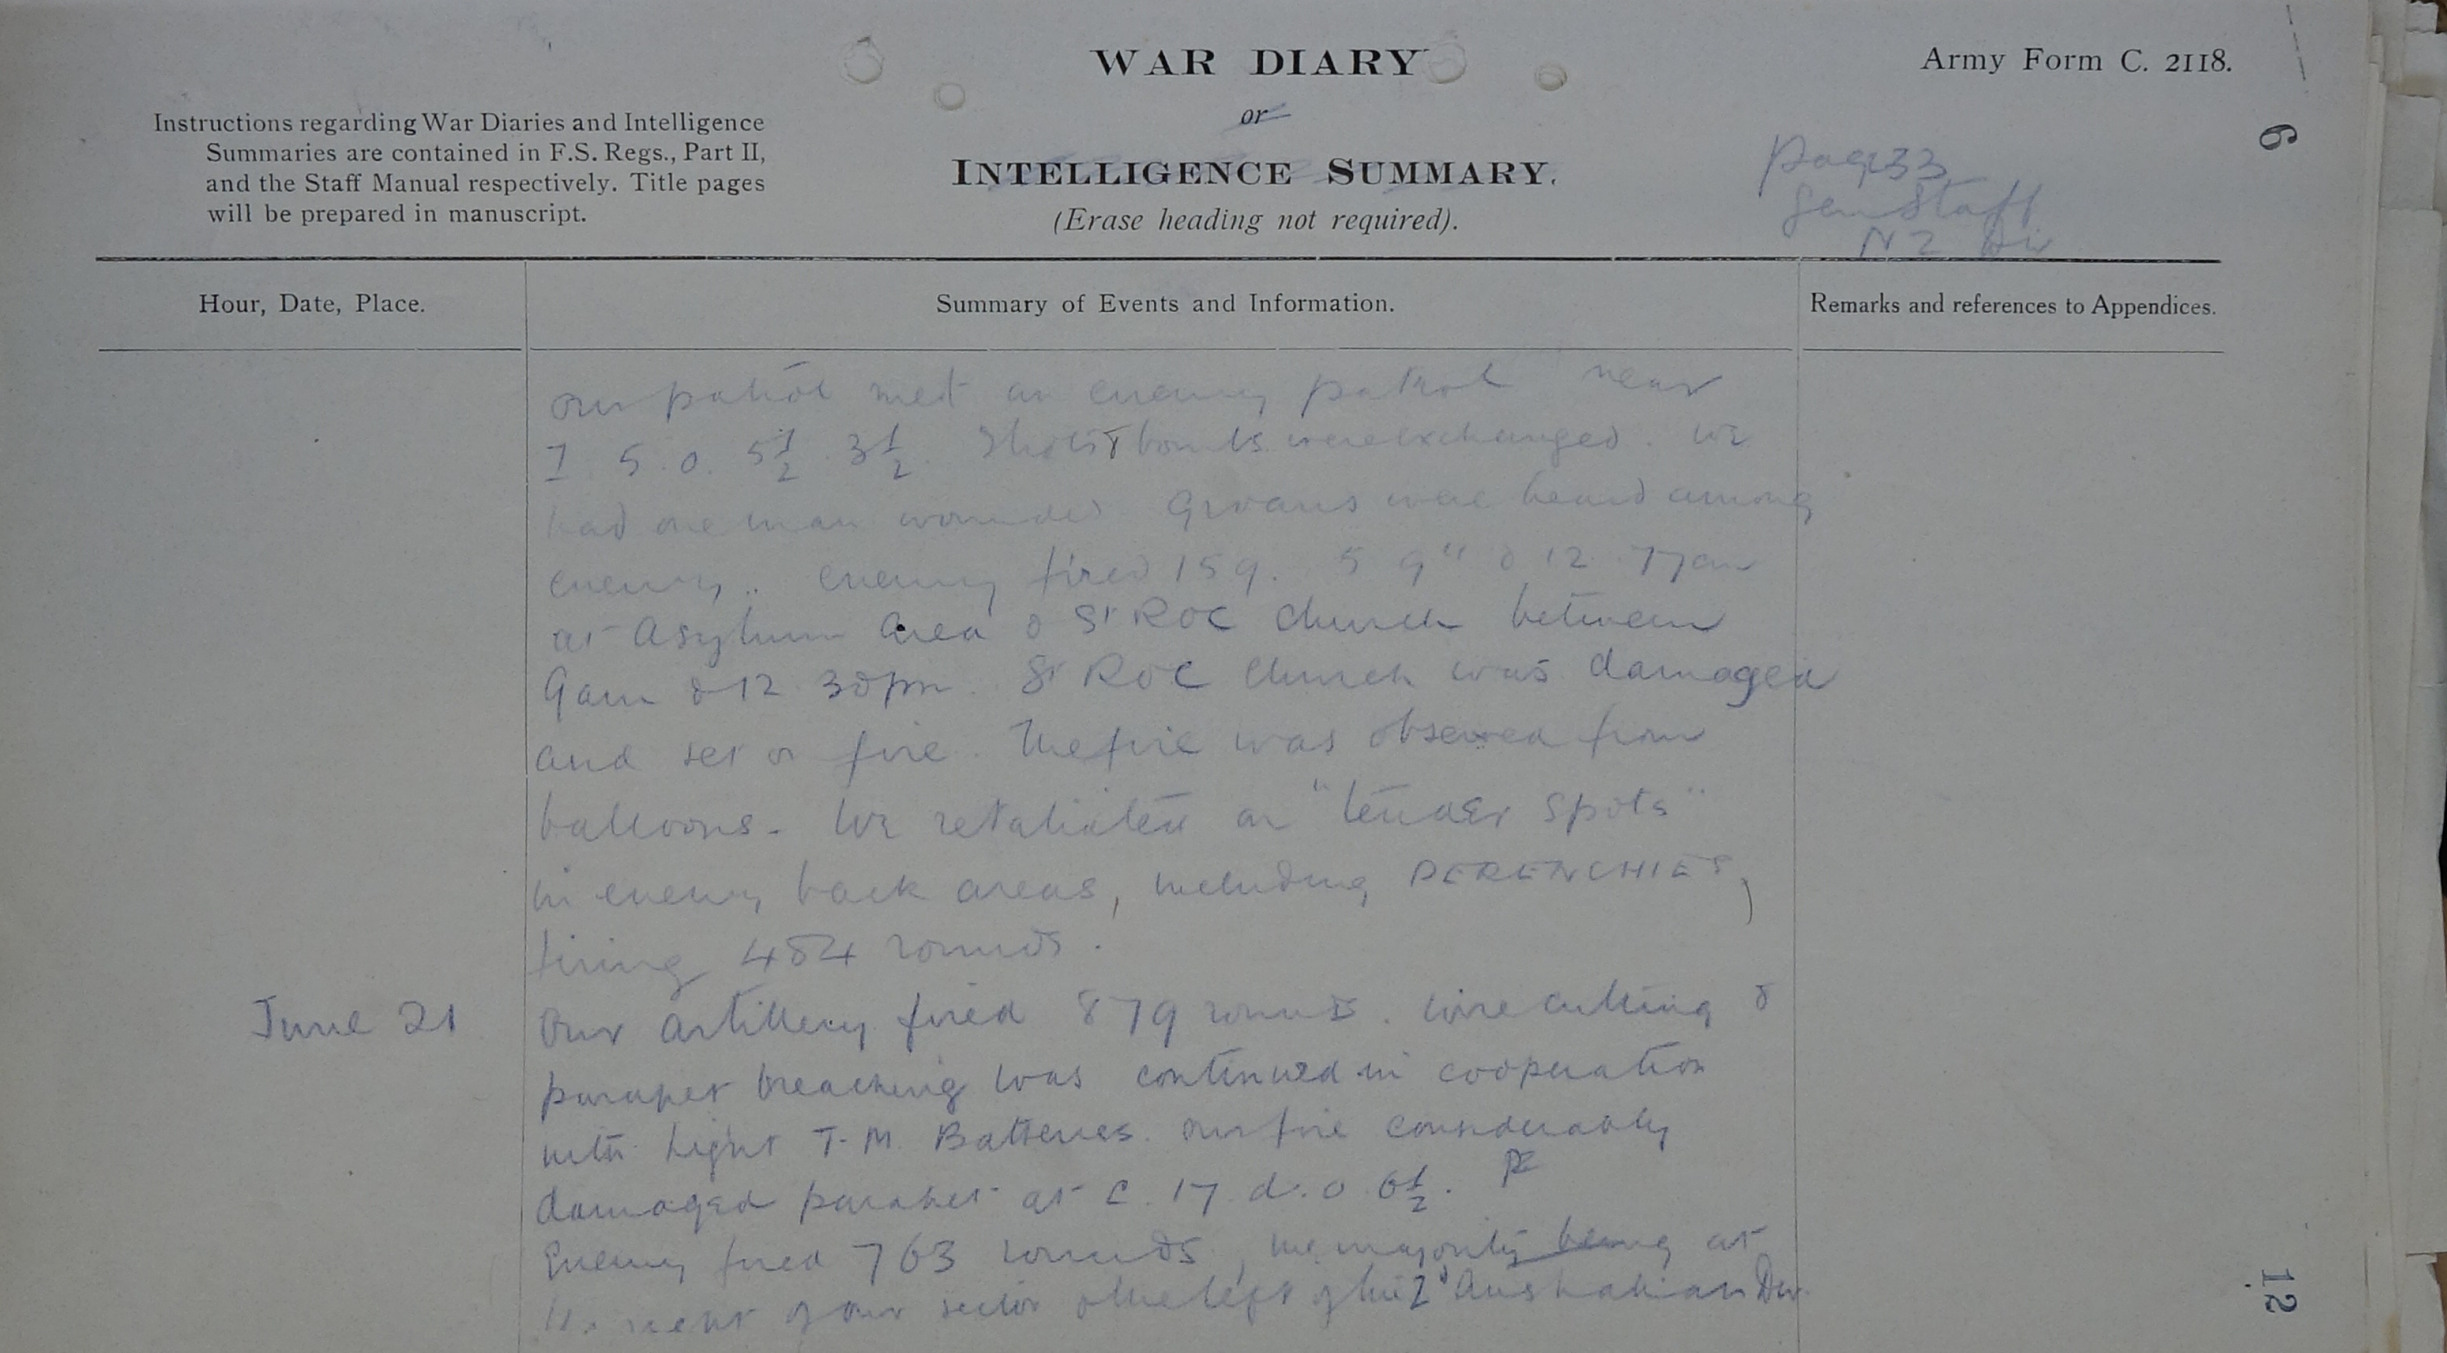 WAR DIARY
or
INTELLIGENCE SUMMARY.
(Erase heading not required).
Army Form C. 2118.
Instructions regarding War Diaries and Intelligence
Summaries are contained in F.S. Regs., Part II,
and the Staff Manual respectively. Title pages
will be prepared in manuscript.
page 33
Gen Staff
N Z Div
6
Hour, Date, Place.
Summary of Events and Information.
Remarks and references to Appendices.
Our patrol met an enemy patrol near
I 5.0. 5½ 3½. Shots & bombs were exchanged. We
had one man wounded Groans were heard among
enemy.. Enemy fired 159. 5 9" & 12 77cm
at Asylum Area & St ROC church between
9am & 12 30pm. St ROC church was damaged
and set on fire. The fire was observed from
balloons. We retaliated on "tender spots"
in enemy back areas, including PERENCHIES,
firing 484 rounds.
June 21
Our artillery fired 879 rounds. Wire cutting &
parapet breaching was continued in cooperation
with Light T.M. Batteries. Our fire considerably
damaged parapet at C.17.d.0.6½.
Enemy fired 763 rounds, the majority being at
the right of our sector & the left of the 2d Australian Div.
12